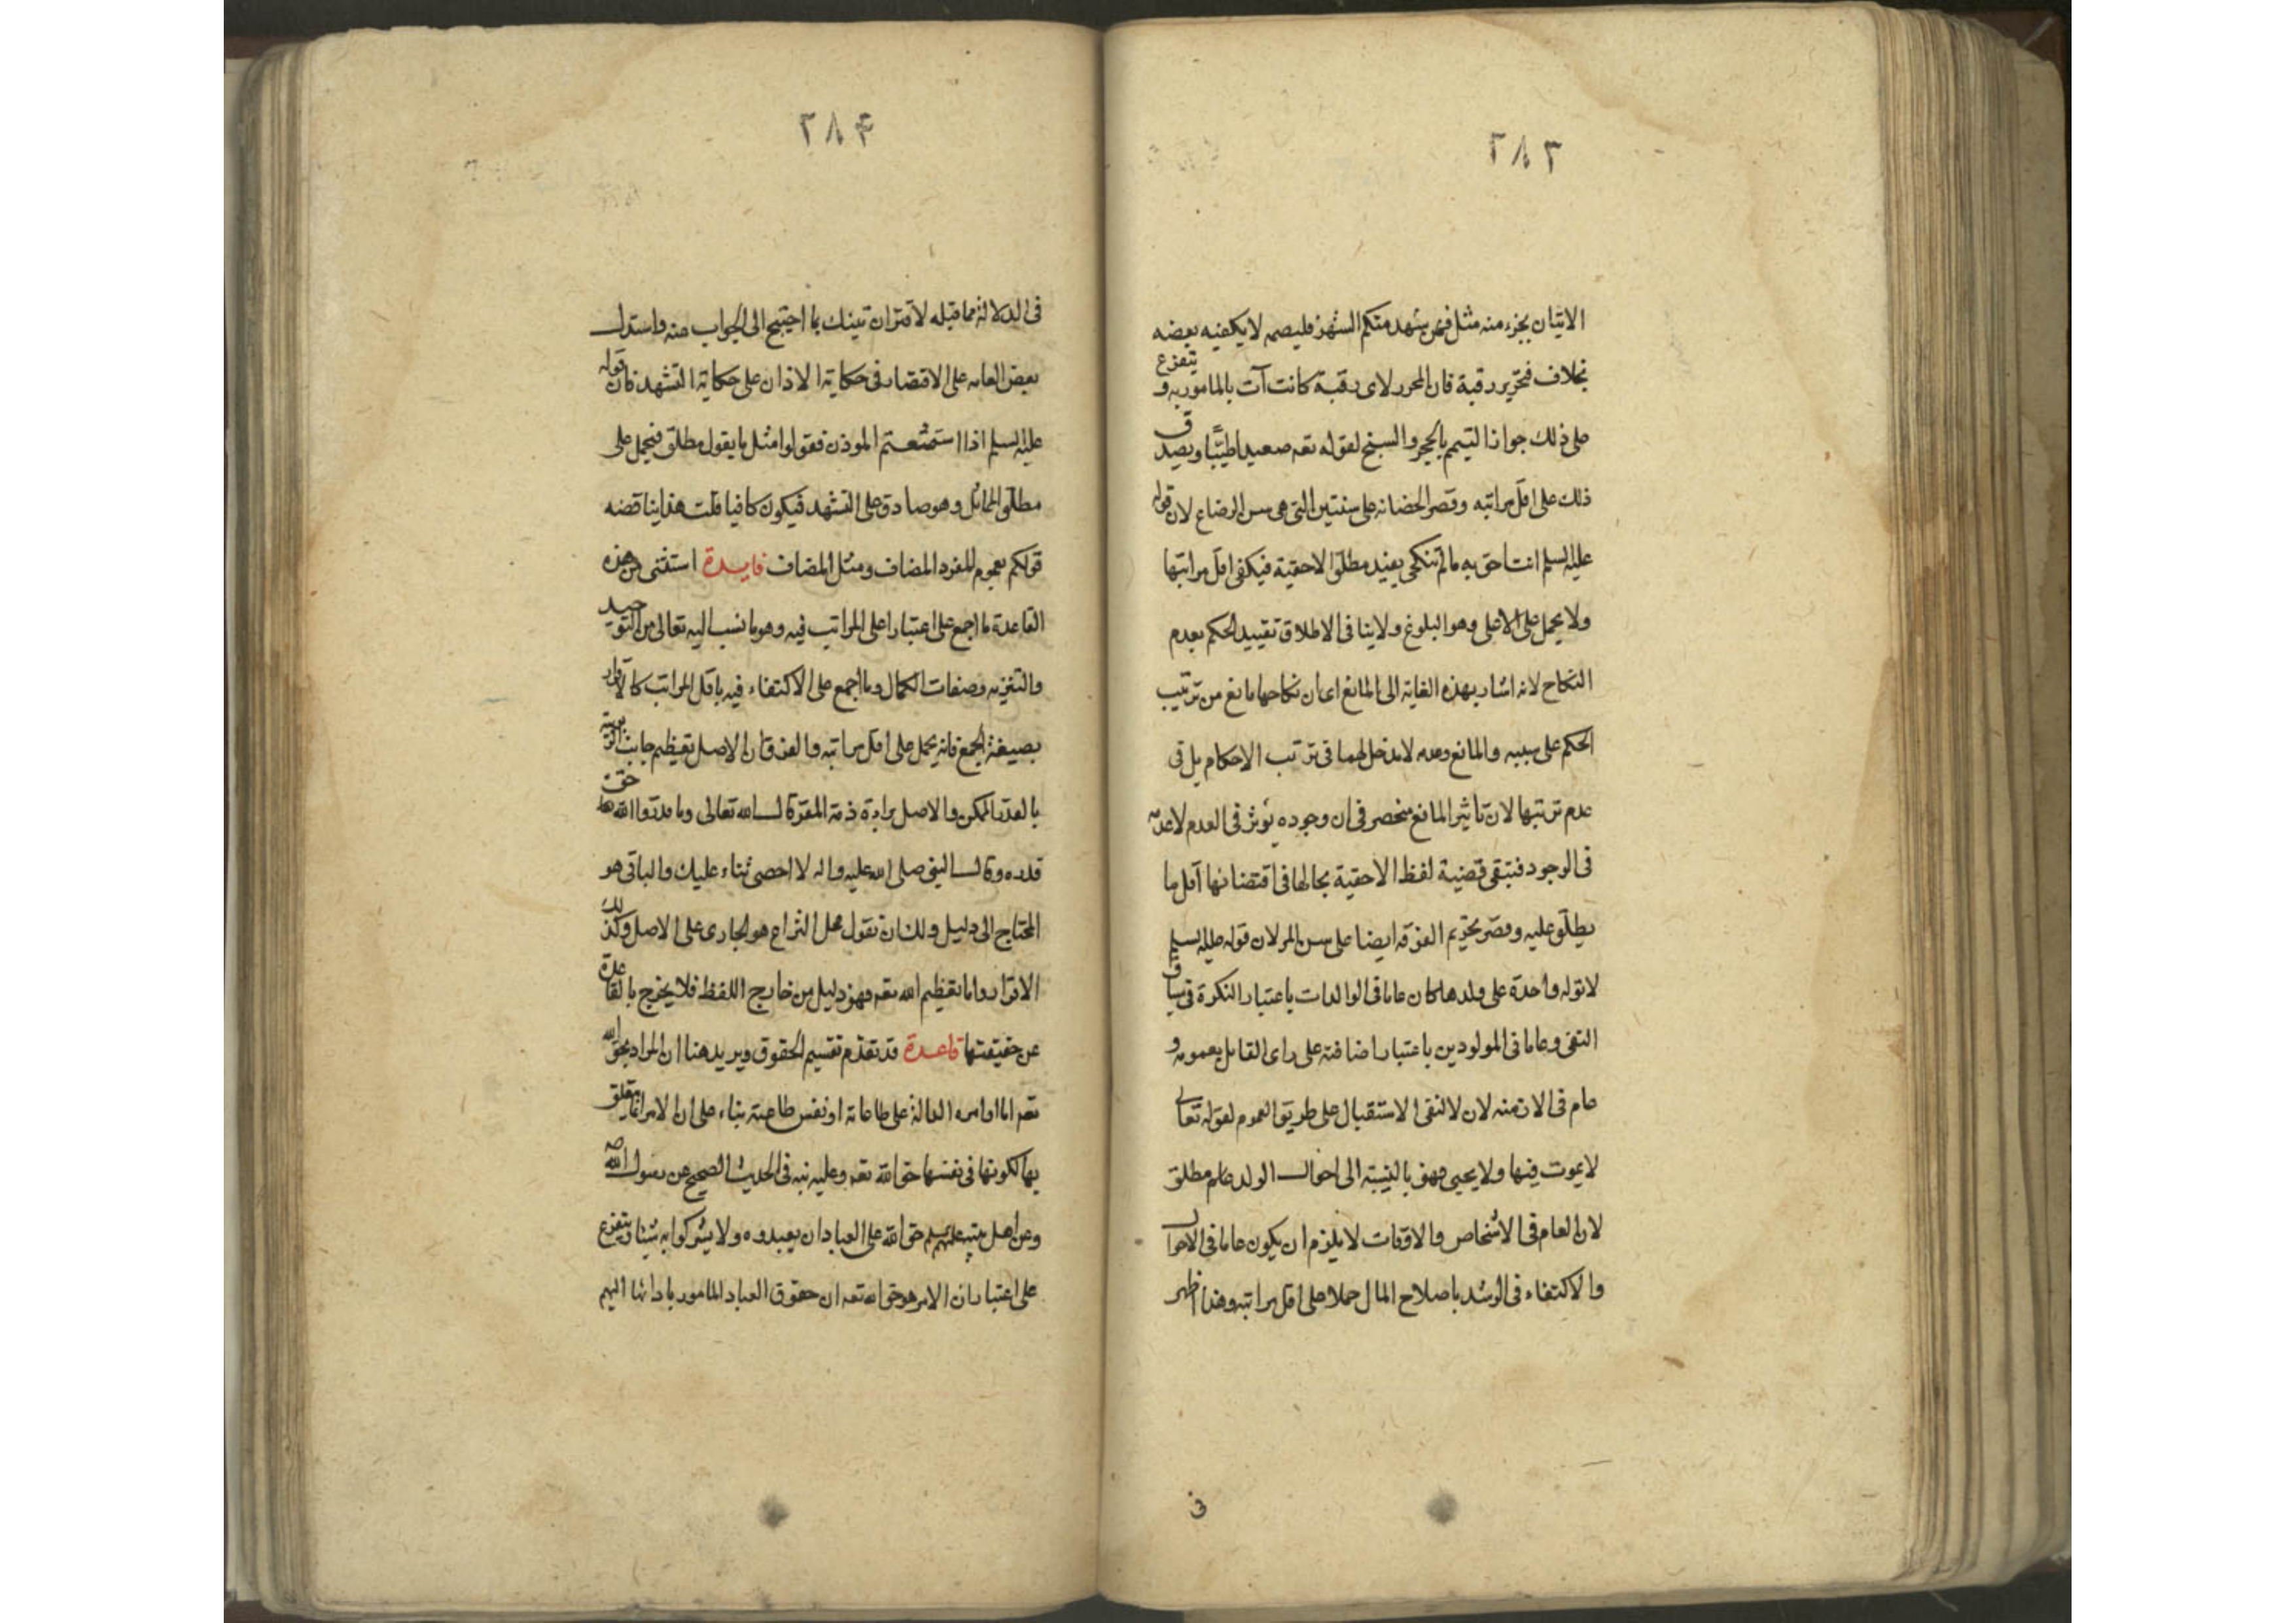 ٢٨٣
الاتيان بجزء منه مثل فمن شهد منكم الشهر فليصمه لا يكفيه بعضه
بخلاف فتحرير رقبة فان المحرر لاى رقبة كانت آت بالمامور به و يتفرع
على ذلك جواز التيمم بالحجر والسبخ لقوله تعه صعيدا طيبًا ويصدق
ذلك على اقل مراتبه وقصر الحضانة على سنتين التى هى سن الرضاع لان قوله
عليه السلم انت احق به ما لم تنكحى يفيد مطلق الاحقية فيكفى اقل مراتبها
ولا يحمل على الاعلى وهو البلوغ ولا ينافى الاطلاق تقييد الحكم بعدم
النكاح لانه اشار بهذه الغاية الى المانع اى ان نكاحها مانع من ترتيب
الحكم على سببه والمانع وعدمه لا مدخل لهما فى ترتب الاحكام بل فى
عدم ترتبها لان تاثير المانع منحصر فى ان وجوده يؤثر فى العدم لا عدمه
فى الوجود فتبقى قضية لفظ الاحقية بحالها فى اقتضائها اقل ما
يطلق عليه وقصر تحريم التفرقه ايضا على سن المر لان قوله عليه السلم
لا توله واحدة على ولدها كان عاما فى الوالدات باعتبار النكرة فى سياق
النفى وعاما فى المولودين باعتبار اضافته على راى القايل بعمومه و
عام فى الازمنه لان لا لنفى الاستقبال على طريق العموم لقوله تعالى
لا يموت فيها ولا يحيى فهو بالنسبة الى احوال الولد عام مطلق
لان العام فى الاشخاص والاوقات لا يلزم ان يكون عاما فى الاحوال
والاكتفاء فى الرشد باصلاح المال حملا على اقل مراتبه وهذا اظهر
فى
٢٨۴
فى الدلالة مما قبله لاقتران تينك بما احتيج الى الجواب عنه واستدل
بعض العامه على الاقتصار فى حكاية الاذان على حكاية التشهد فان قوله
عليه السلم اذا استمعتم الموذن فقولوا مثل ما يقول مطلق فيحمل على
مطلق المماثل وهو صادق على التشهد فيكون كافيا قلت هذا يناقضه
قولكم بعموم المفرد المضاف ومثل المضاف فايدة استثنى من هذه
القاعدة ما اجمع على اعتبار اعلى المراتب فيه وهو ما نسب اليه تعالى من التوحيد
والتنزيه وصفات الكمال وما اجمع على الاكتفاء فيه باقل المراتب كالاقرار
بصيغة الجمع فانه يحمل على اقل مراتبه والفرق ان الاصل تعظيم جانب الربوبية
بالقدر الممكن والاصل براءة ذمة المقر قال الله تعالى وما قدروا الله حق
قدره وقال النبى صلى الله عليه واله لا احصى ثناء عليك والباقى هو
المحتاج الى دليل ولك ان تقول محل النزاع هو الجارى على الاصل وكذلك
الاقرار واما تعظيم الله تعه فهو دليل من خارج اللفظ فلا يخرج بالقاعدة
عن حقيقتها قاعدة قد تقدم تقسيم الحقوق ويريد هنا ان المراد بحق الله
تعه اما اوامره الدالة على طاعاته او نفس طاعته بناء على ان الامر انما يتعلق
بها لكونها فى نفسها حق الله تعه وعليه نبه فى الحديث الصحيح عن رسول الله صه
وعن اهل بيته عليهم السلم حق الله على العباد ان يعبدوه ولا يشركوا به شيئا ويتفرع
على اعتبار ان الامر هو حق الله تعه ان حقوق العباد المامور بادائها اليهم